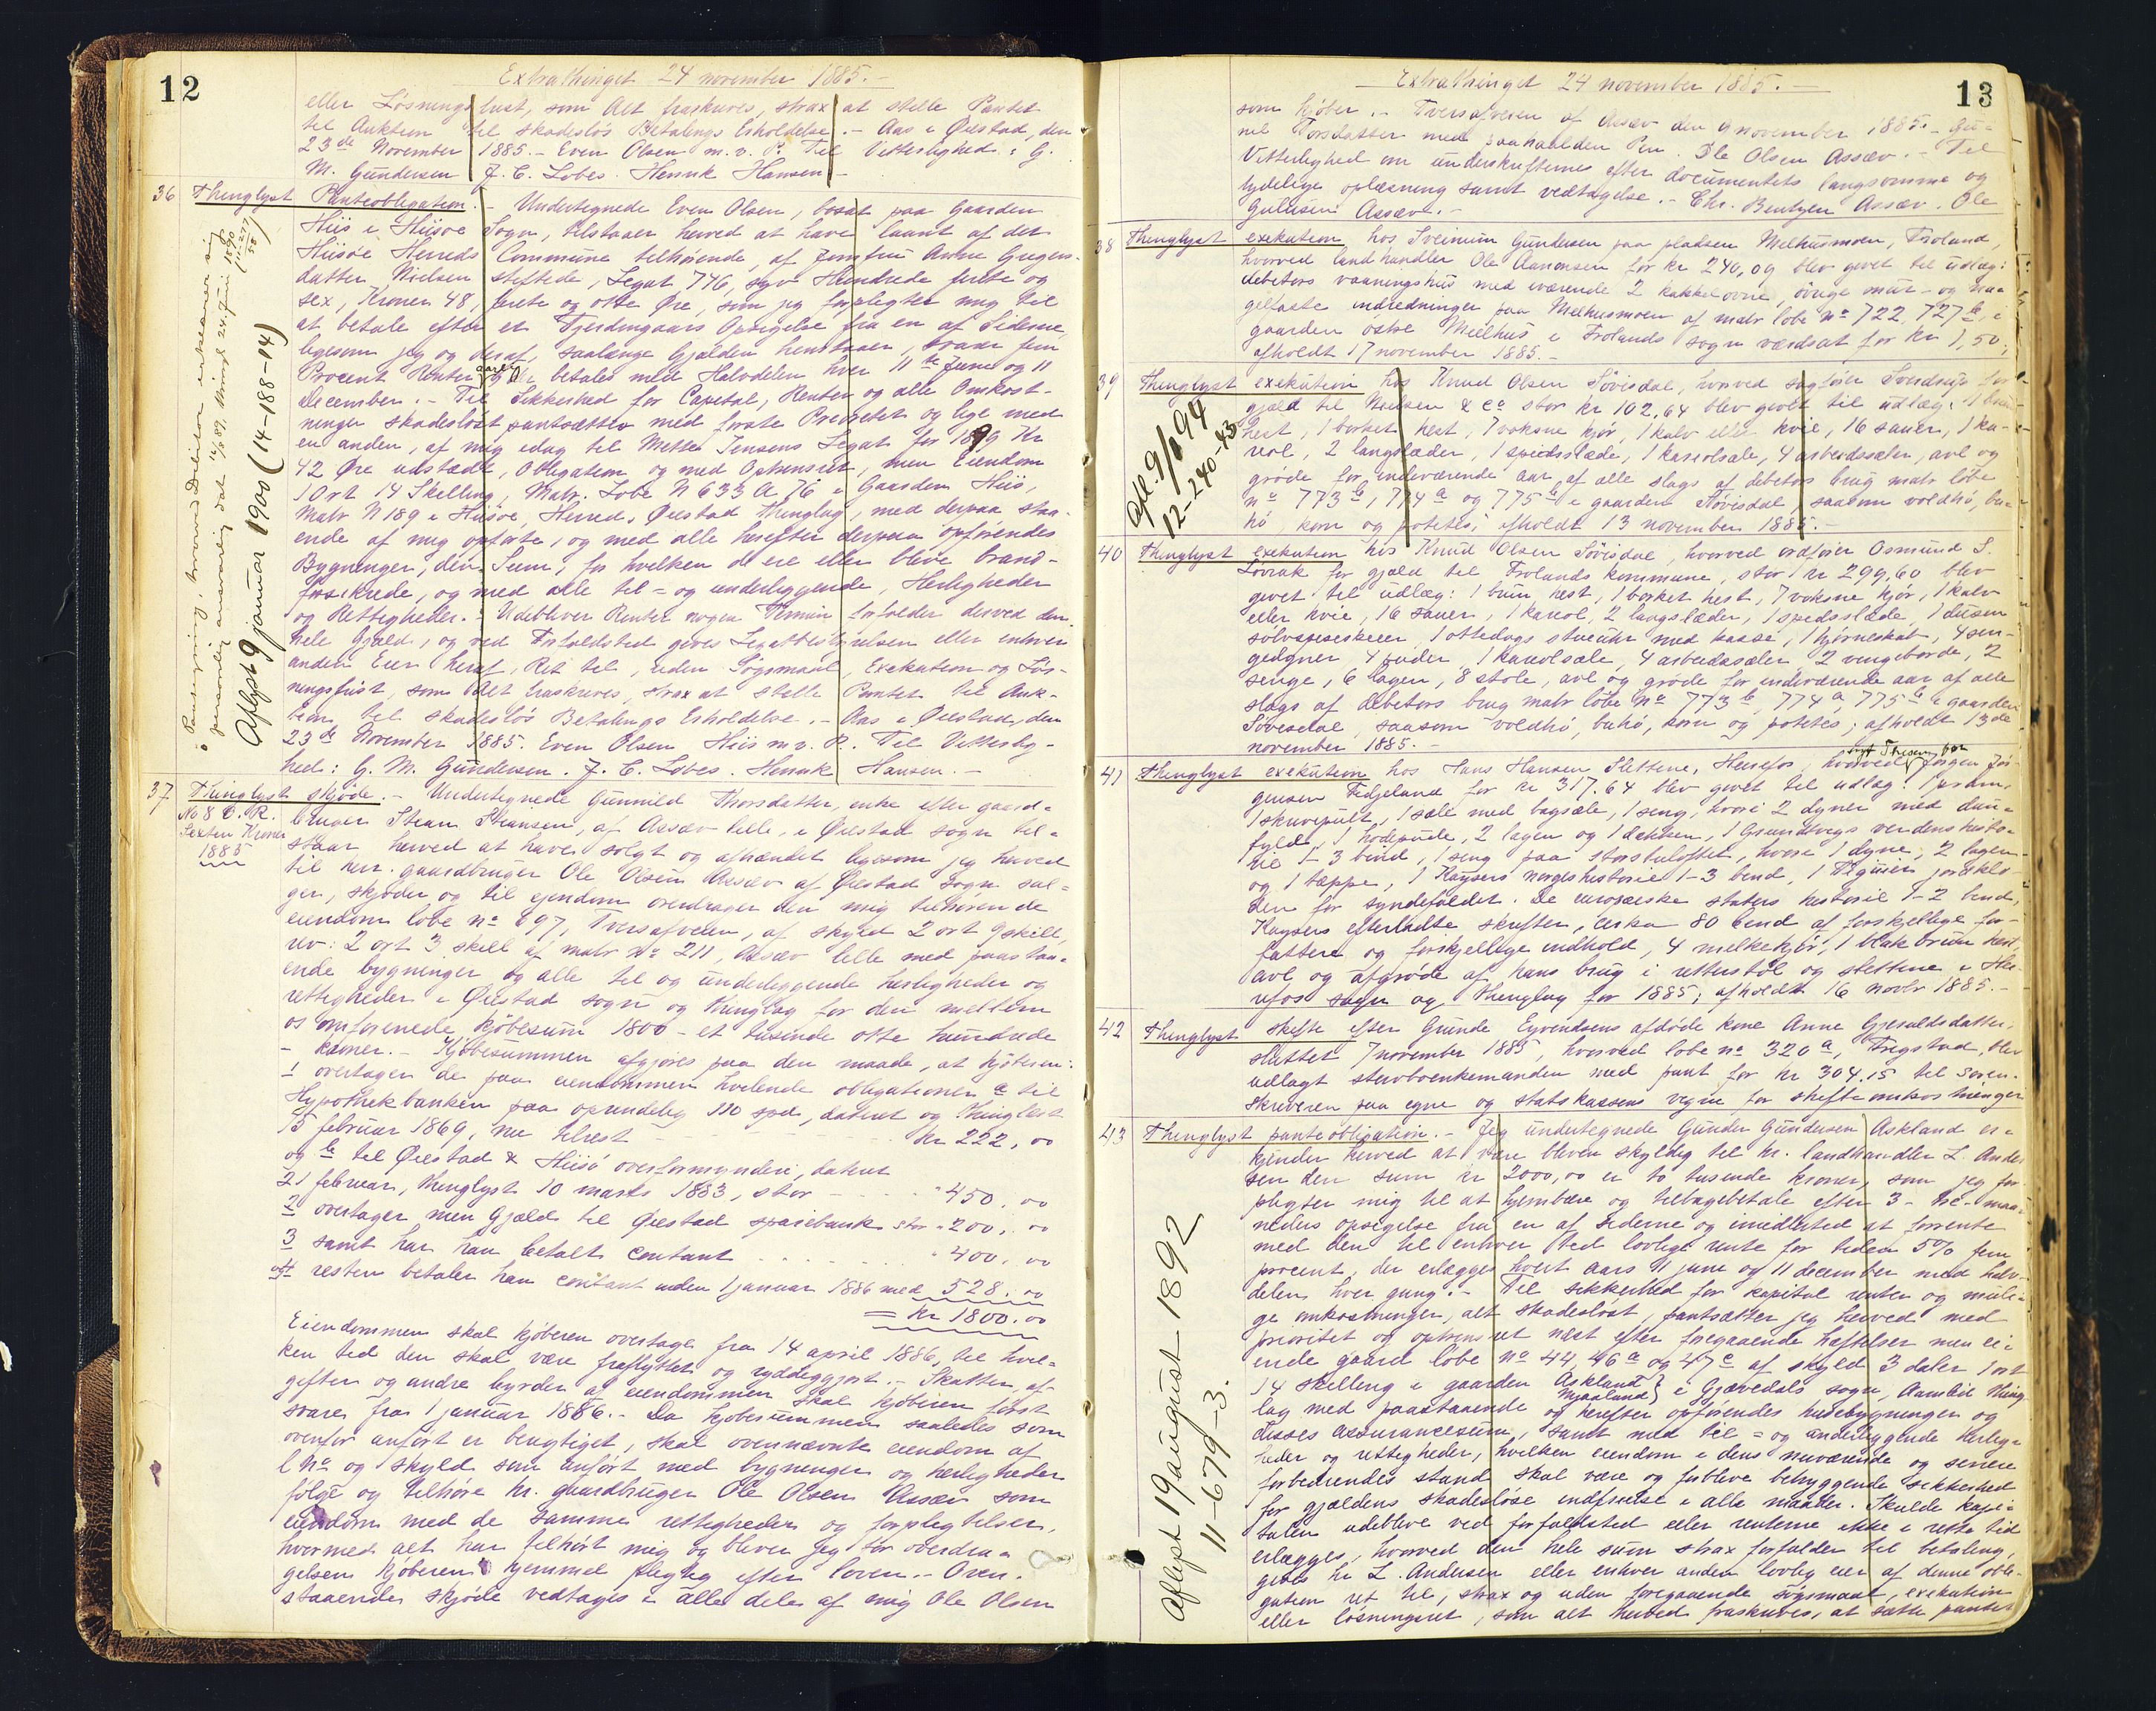 12
Extrathinget 24 november 1885.-
eller Løsnings lust, som Alt fraskrives, strax at stille Pantet
til Auktion til skadesløs Betalings Erholdelse. - Aas i Øiestad, den
23de November 1885. - Even Olsen m. v. P. Til Vitterlighed: G.
M. Gundersen J. C. Løbes. Henrik Hansen -
36 Thinglyst Panteobligation. - Undertegnede Even Olsen, bosat paa Gaarden
Hiis i Hiisøe Sogn, tilstaaer herved at have laant af det
Hiisøe Herreds Commune tilhørende, af Jomfru Anne Gregers-
datter Nielsen stiftede, Legat 746, syv Hundrede førte og
sex, Kroner 48, førte og otte Øre, som jeg forpligter mig til
at betale efter et Fjerdingaars Opsigelse fra en af Siderne,
ligesom jeg og deraf, saalænge Gjælden henstaaer, svarer fem
Procent Renter aarlig der betales med Halvdelen hver 11te Juni og 11
December. - Til Sikkerhed for Capital, Renter og alle Omkost-
ninger skadesløst pantsætter med første Prioritet og lige med
en anden, af mig idag til Mette Jensens Legat for 1899 Kr
42 Øre udstædt, Obligation og med Optrinsret, min Eiendom
1 Ort 14 Skelling, Matr. Løbe N 633 A 76 i Gaarden Hiis,
Matr N 189 i Hiisøe, Herred, Øiestad Thinglag, med derpaa staa-
ende af mig opførte, og med alle herefter derpaa opførendes
Bygninger, den Sum, for hvilken de ere eller blive brand-
forsikrede, og med alle til = og underliggende, Herligheder
og Rettigheder. - Udebliver Renter nogen Termin forfalder derved den
hele Gjæld, og ved Forfaldstid gives Legatbestyrelsen eller enhver
anden Eier heraf, Ret til, uden Søgsmaal, Exekution og Løs-
ningsfrist, som Alt fraskrives, strax at stille Pantet til Auk-
tion til skadesløs Betalings Erholdelse. - Aas i Øiestad, den
23de November 1885. Even Olsen Hiis m. v. P. Til Vitterlig-
hed: G. M. Gundersen. J. C. Løbes. Henrik Hansen. -
Aflyst 9 januar 1900 (14-188-14)
37 Thinglyst skjøde. - Undertegnede Gunnild Thorsdatter, enke efter gaard-
No 8 C. R.
Sexten Kroner
1885
bruger Stean Steansen, af Assæv lille, i Øiestad sogn til-
staar herved at have solgt og afhændet ligesom jeg herved
til herr. gaardbruger Ole Olsen Assæv af Øiestad sogn sæl-
ger, skjøder og til ejendom overdrager den mig tilhørende
eiendom løbe no 697, Tversafveien, af skyld 2 ort 9 skill,
rev: 2 ort 3 skill af matr no 211, Assæv lille med paastaa-
ende bygninger og alle til og underliggende herligheder og
rettigheder i Øiestad sogn og thinglag for den mellem
os omforenede kjøbesum 1800 - et tusinde otte hundrede
- kroner. - Kjøbesummen afgjøres paa den maade, at kjøberen:
1 overtager de paa eiendommen hvilende obligationer a til
Hypothekbanken paa oprindelig 110 spd, dateret og thinglæst
15 februar 1869, nu tilrest - - - kr 222,00
og b til Øiestad & Hiisø overformynderi, dateret
21 februar, thinglyst 10 marts 1883, stor - - - " 450.00
2 overtager min gjæld til Øiestad sparebank stor " 200.00
3 samt har han betalt contant . . . . " 400.00
og 4 resten betaler han contant inden 1 januar 1886 med 528.00
= kr 1800.00
Eiendommen skal kjøberen overtage fra 14 april 1886, til hvil-
ken tid den skal være fraflyttet og ryddiggjort. - Skatter, af-
gifter og andre byrder af eiendommen skal kjøberen først
svare fra 1 januar 1886. - Da kjøbesummen saaledes som
ovenfor anført er berigtiget, skal ovennævnte eiendom af
l no og skyld som anført med bygninger og herligheder
følge og tilhøre hr. gaardbruger Ole Olsen Assæv som
eiendom med de samme rettigheder og forpligtelser,
hvormed alt har tilhørt mig og bliver jeg for overdra-
gelsen kjøberens hjemmel pligtig efter loven. - Oven-
staaende skjøde vedtages i alle dele af mig Ole Olsen
Extrathinget 24 november 1885. -
13
som kjøber. - Tversafveien af Assæv den 9 november 1885. - Gu-
nil Torsdatter med paaholden Pen. Ole Olsen Assæv. - Til
Vitterlighed om underskrifternes efter documentets langsomme og
tydelige oplæsning samt vedtagelse. - Chr. Bentzen Assæv. Ole
Gulusen Assæv. -
38 Thinglyst exekution hos Sveinum Gundersen paa pladsen Melhusmoen, Froland,
hvorved landhandler Ole Aanonsen for kr 240,09 blev givet til udlæg:
debitors vaaningshus med iværende 2 kakkelovne, øvrige mur- og na-
gelfaste indredninger paa Melhusmoen af matr løbe no 722, 727 b, i
gaarden østre Mielhus i Frolands sogn værdsat for kr 1,50;
afholdt 17 november 1885. -
39 Thinglyst exekution hos Knud Olsen Søvisdal, hvorved sagfører Sverdrup for
gjæld til Nielsen & Co stor kr 102,64 blev givet til udlæg: 1 brun
hest, 1 borket hest, 7 voksne kjør, 1 kalv eller kvie, 16 sauer, 1 ka-
riol, 2 langslæder, 1 spidsslæde, 1 kariolsæle, 4 arbeidssæler, avl og
grøde for indeværende aar af alle slags af debitors brug matr løbe
no 773 b, 774 a og 775 b i gaarden Søvisdal, saasom voldhø, bu-
hø, korn og potetes; afholdt 13 november 1885. -
Afl. 9/6 94
12-240-43
40 Thinglyst exekution hos Knud Olsen Søvisdal, hvorved ordfører Osmund S.
Lovrak for gjæld til Frolands kommune, stor kr 299,60 blev
givet til udlæg: 1 brun hest, 1 borket hest, 7 voksne kjør, 1 kalv
eller kvie, 16 sauer, 1 kariol, 2 langslæder, 1 spidsslæde, 1 dusin
sølvspiseskeer, 1 ottedags stueuhr med kasse, 1 hjørneskab, 4 sen-
gedyner 4 puder, 1 kariolsæle, 4 arbeidssæler, 2 vengeborde, 2
senge, 6 lagen, 8 stole, avl og grøde for indeværende aar af alle
slags af debitors brug matr løbe no 773 b, 774 a, 775 b i gaarden
Søvesdal, saasom voldhø, buhø, korn og potetes; afholdt 13de
november 1885. -
41 Thinglyst exekution hos Hans Hansen Slettene, Herefos, hvorved sagf Thesen for Jørgen Jør-
gensen Fidjeland for kr 317.64 blev givet til udlæg: 1 pram,
1 skrivepult, 1 sæle med bagsæle, 1 seng, hvori 2 dyner med dun-
fyld, 1 hodepude, 2 lagen og 1 dækken, 1 Grundtvigs verdenshisto-
rie 1-3 bind, 1 seng paa storstuloftet, hvori 1 dyne, 2 lagen
og 1 tæppe, 1 Kaysers norgeshistorie 1-3 bind, 1 Figuier jordklo-
den før syndefaldet. De europæiske staters historie 1-2 bind,
Kaysers efterladte skrifter, cirka 80 bind af forskjellige for-
fattere og forskjellige indhold, 4 melkekjør, 1 blakbrun hest,
avl og afgrøde af hans brug i retterstøl og slettene i He-
refos sogn og thinglag for 1885; afholdt 16 novbr 1885. -
42 Thinglyst skifte efter Gunde Eyvindsens afdøde kone Anne Gjeraldsdatter,
sluttet 7 november 1885, hvorved løbe no 320 a, Fregstad, blev
udlagt stervboenkemanden med pant for kr 304.15 til soren-
skriveren paa egne og statskassens vegne for skifteomkostninger
43 Thinglyst panteobligation. - Jeg undertegnede Gunder Gundersen Askland er-
kjender herved at være bleven skyldig til hr. landhandler L. Ander-
sen den sum kr 2000,00 er to tusinde kroner, som jeg for-
pligter mig til at hjembære og tilbagebetale efter 3 - tre - maa-
neders opsigelse fra en af siderne og imidlertid at forrente
med den til enhver tid lovlige rente for tiden 5% fem
procent, der erlægges hvert aars 11 june og 11 december med halv-
delen hver gang. - Til sikkerhed for kapital renter og muli-
ge omkostninger, alt skadesløst, pantsætter jeg herved med
prioritet og optrinsret næst efter foregaaende hæftelser men ei-
ende gaard løbe no 44, 46 a og 47 c af skyld 3 daler 1 ort
14 skilling i gaarden Askland Mjaaland } i Gjævedals sogn, Aamlid thing-
lag med paastaaende og herefter opførendes husebygninger og
disses assurancesum, samt med til = og underliggende herlig-
heder og rettigheder, hvilken eiendom i dens nuværende og senere
forbedrendes stand skal være og forblive betryggende sikkerhed
for gjældens skadesløse indfrielse i alle maader. Skulde kapi-
talen udeblive ved forfaldstid eller renterne ikke i rette tid
erlægges, hvorved den hele sum strax forfalder til betaling,
gives hr L. Andersen eller enhver anden lovlig eier af denne obli-
gation ret til, strax og uden foregaaende søgsmaal, exekution
eller løsningsret, som alt herved fraskrives, at sætte pantet
Aflyst 19 august 1892
11-679-3.